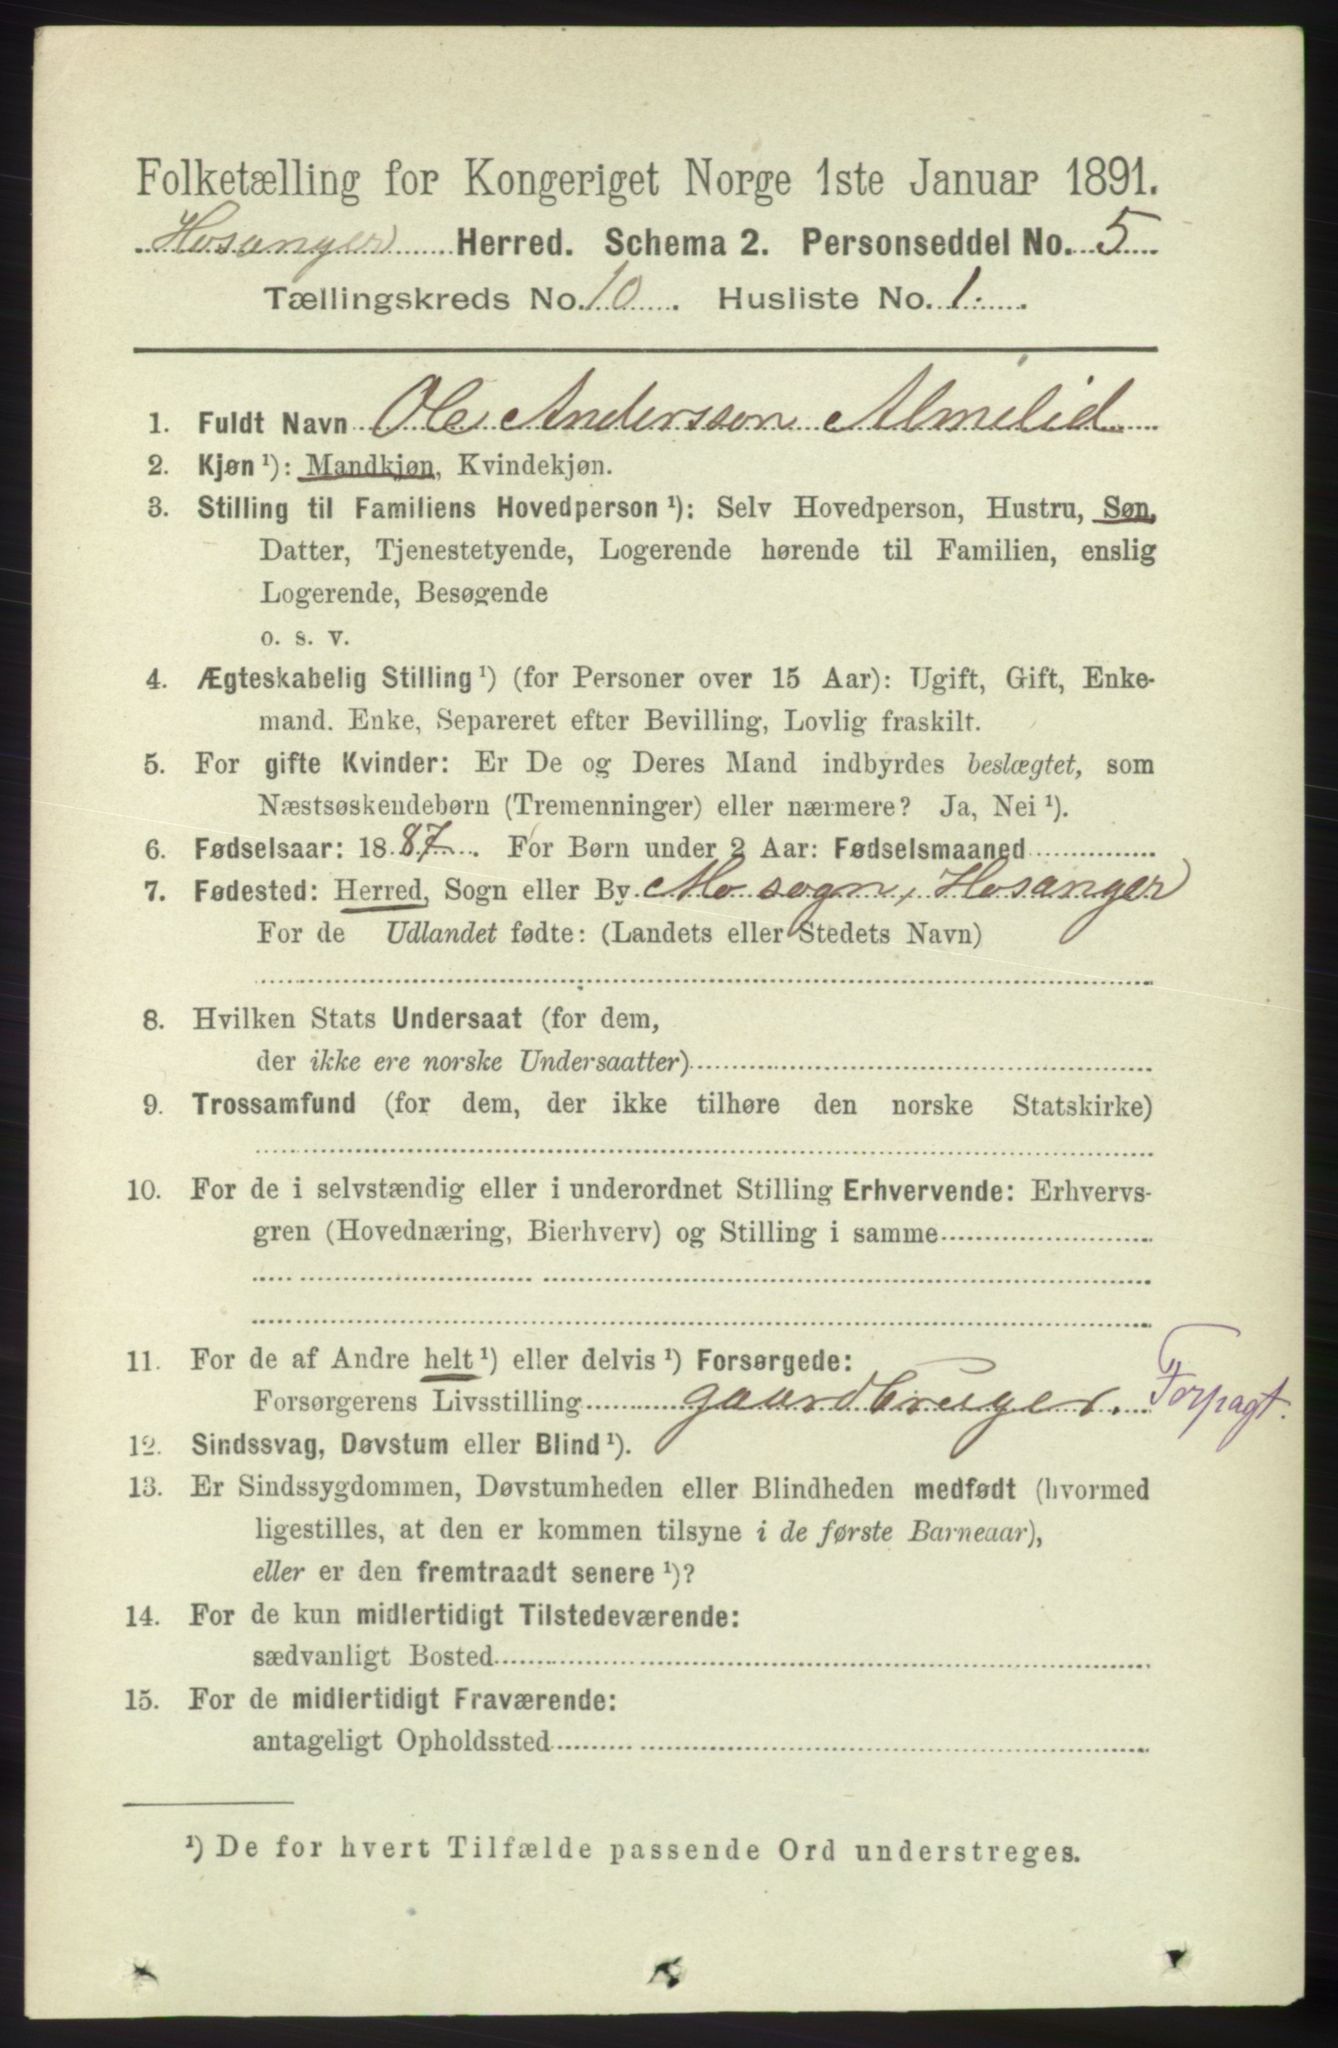 Folketælling for Kongeriget Norge 1ste Januar 1891.
Hosanger Herred. Schema 2. Personseddel No. 5
Tællingskreds No. 10. Husliste No. 1.
1. Fuldt Navn Ole Andersson Almelid
2. Kjøn ¹): Mandkjøn, Kvindekjøn.
3. Stilling til Familiens Hovedperson ¹): Selv Hovedperson, Hustru, Søn,
Datter, Tjenestetyende, Logerende hørende til Familien, enslig
Logerende, Besøgende
o. s. v.
4. Ægteskabelig Stilling ¹) (for Personer over 15 Aar): Ugift, Gift, Enke-
mand. Enke, Separeret efter Bevilling, Lovlig fraskilt.
5. For gifte Kvinder: Er De og Deres Mand indbyrdes beslægtet, som
Næstsøskendebørn (Tremenninger) eller nærmere? Ja, Nei ¹).
6. Fødselsaar: 1887. For Børn under 2 Aar: Fødselsmaaned
7. Fødested: Herred, Sogn eller By Mo sogn, Hosanger
For de Udlandet fødte: (Landets eller Stedets Navn)
8. Hvilken Stats Undersaat (for dem,
der ikke ere norske Undersaatter)
9. Trossamfund (for dem, der ikke tilhøre den norske Statskirke)
10. For de i selvstændig eller i underordnet Stilling Erhvervende: Erhvervs-
gren (Hovednæring, Bierhverv) og Stilling i samme
11. For de af Andre helt ¹) eller delvis ¹) Forsørgede:
Forsørgerens Livsstilling gaardbruger. Forpagt.
12. Sindssvag, Døvstum eller Blind ¹).
13. Er Sindssygdommen, Døvstumheden eller Blindheden medfødt (hvormed
ligestilles, at den er kommen tilsyne i de første Barneaar),
eller er den fremtraadt senere ¹)?
14. For de kun midlertidigt Tilstedeværende:
sædvanligt Bosted
15. For de midlertidigt Fraværende:
antageligt Opholdssted
¹) De for hvert Tilfælde passende Ord understreges.